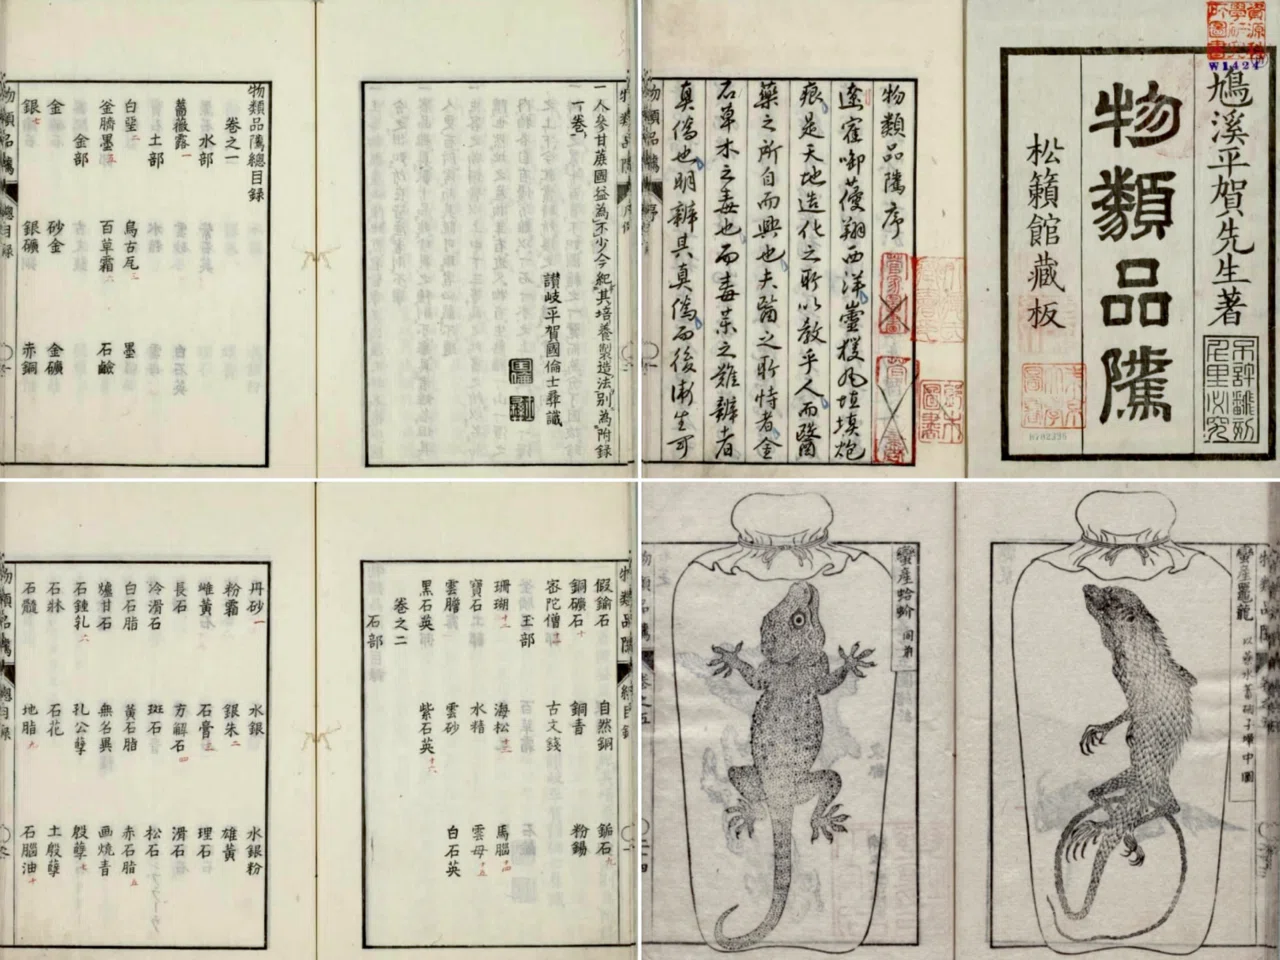 鳩溪平賀先生著
物類品隲
松籟館藏板
W1424
物類品隲序
遼𮥼啣蓡翔西洋
痕是天地造化之所以教乎人而醫
藥之所自而興也夫醫之所恃者金
石草木之毒也而毒藥之難辨者
真偽也明辨其真偽而後漸生可
物類品隲
序
一人參甘蔗國益為不少今紀其培養製造法別為附錄
一卷
讃岐平賀國倫士彝識
物類品隲總目錄
卷之一
水部
薔薇露一
土部
白堊二 烏古瓦三 墨
釜臍墨五 百草霜六 石鹼
金部
金 砂金 金礦
銀七 銀礦 赤銅
物類品隲
總目錄
假鍮石 自然銅 鍮石九
銅礦石十 銅青 粉錫
密陀僧 古文錢
玉部
珊瑚 海松 馬腦十四
寶石 水精 雲母十五
雲膽 雲砂 白石英
黑石英 紫石英十六
卷之二
石部
丹砂一 水銀 水銀粉
粉霜 銀朱二 雄黃
雌黃 石膏三 理石
長石 方解石四 滑石
冷滑石 斑石 松石
白石脂 黃石脂 赤石脂五
爐甘石 無名異 畫燒青
石鍾乳六 孔公孽 殷孽七
石牀 石花 土殷孽
石髓 地脂九 石腦油十
物類品隲
總目錄
蠻產鼉龍
蠻產蛤蚧 同前
物類品隲
卷之五